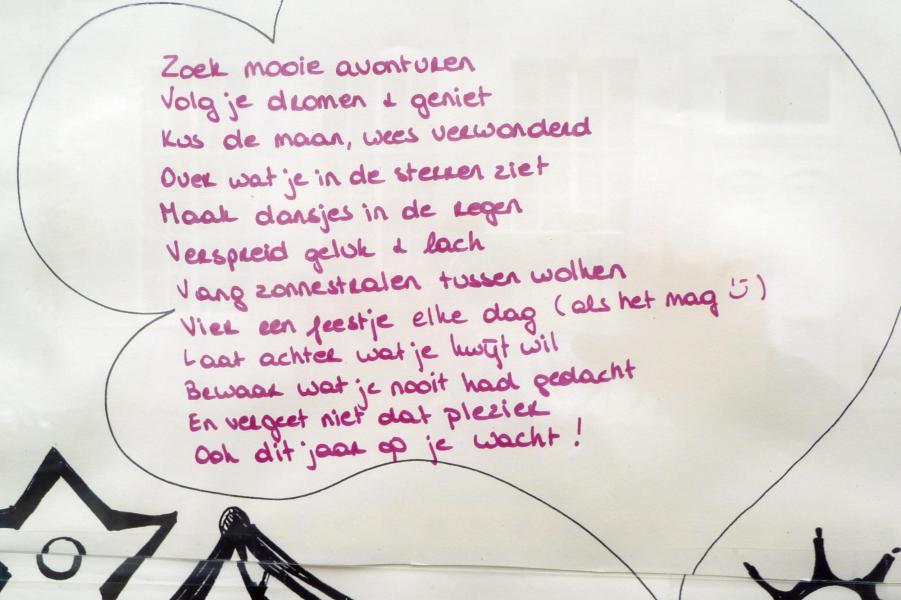 Zoek mooie avonturen
Volg je dromen & geniet
Kus de maan, wees verwonderd
Over wat je in de sterren ziet
Maak dansjes in de regen
Verspreid geluk & lach
Vang zonnestralen tussen wolken
Vier een feestje elke dag (als het mag ☺)
Laat achter wat je kwijt wil
Bewaar wat je nooit had gedacht
En vergeet niet dat plezier
Ook dit jaar op je wacht!